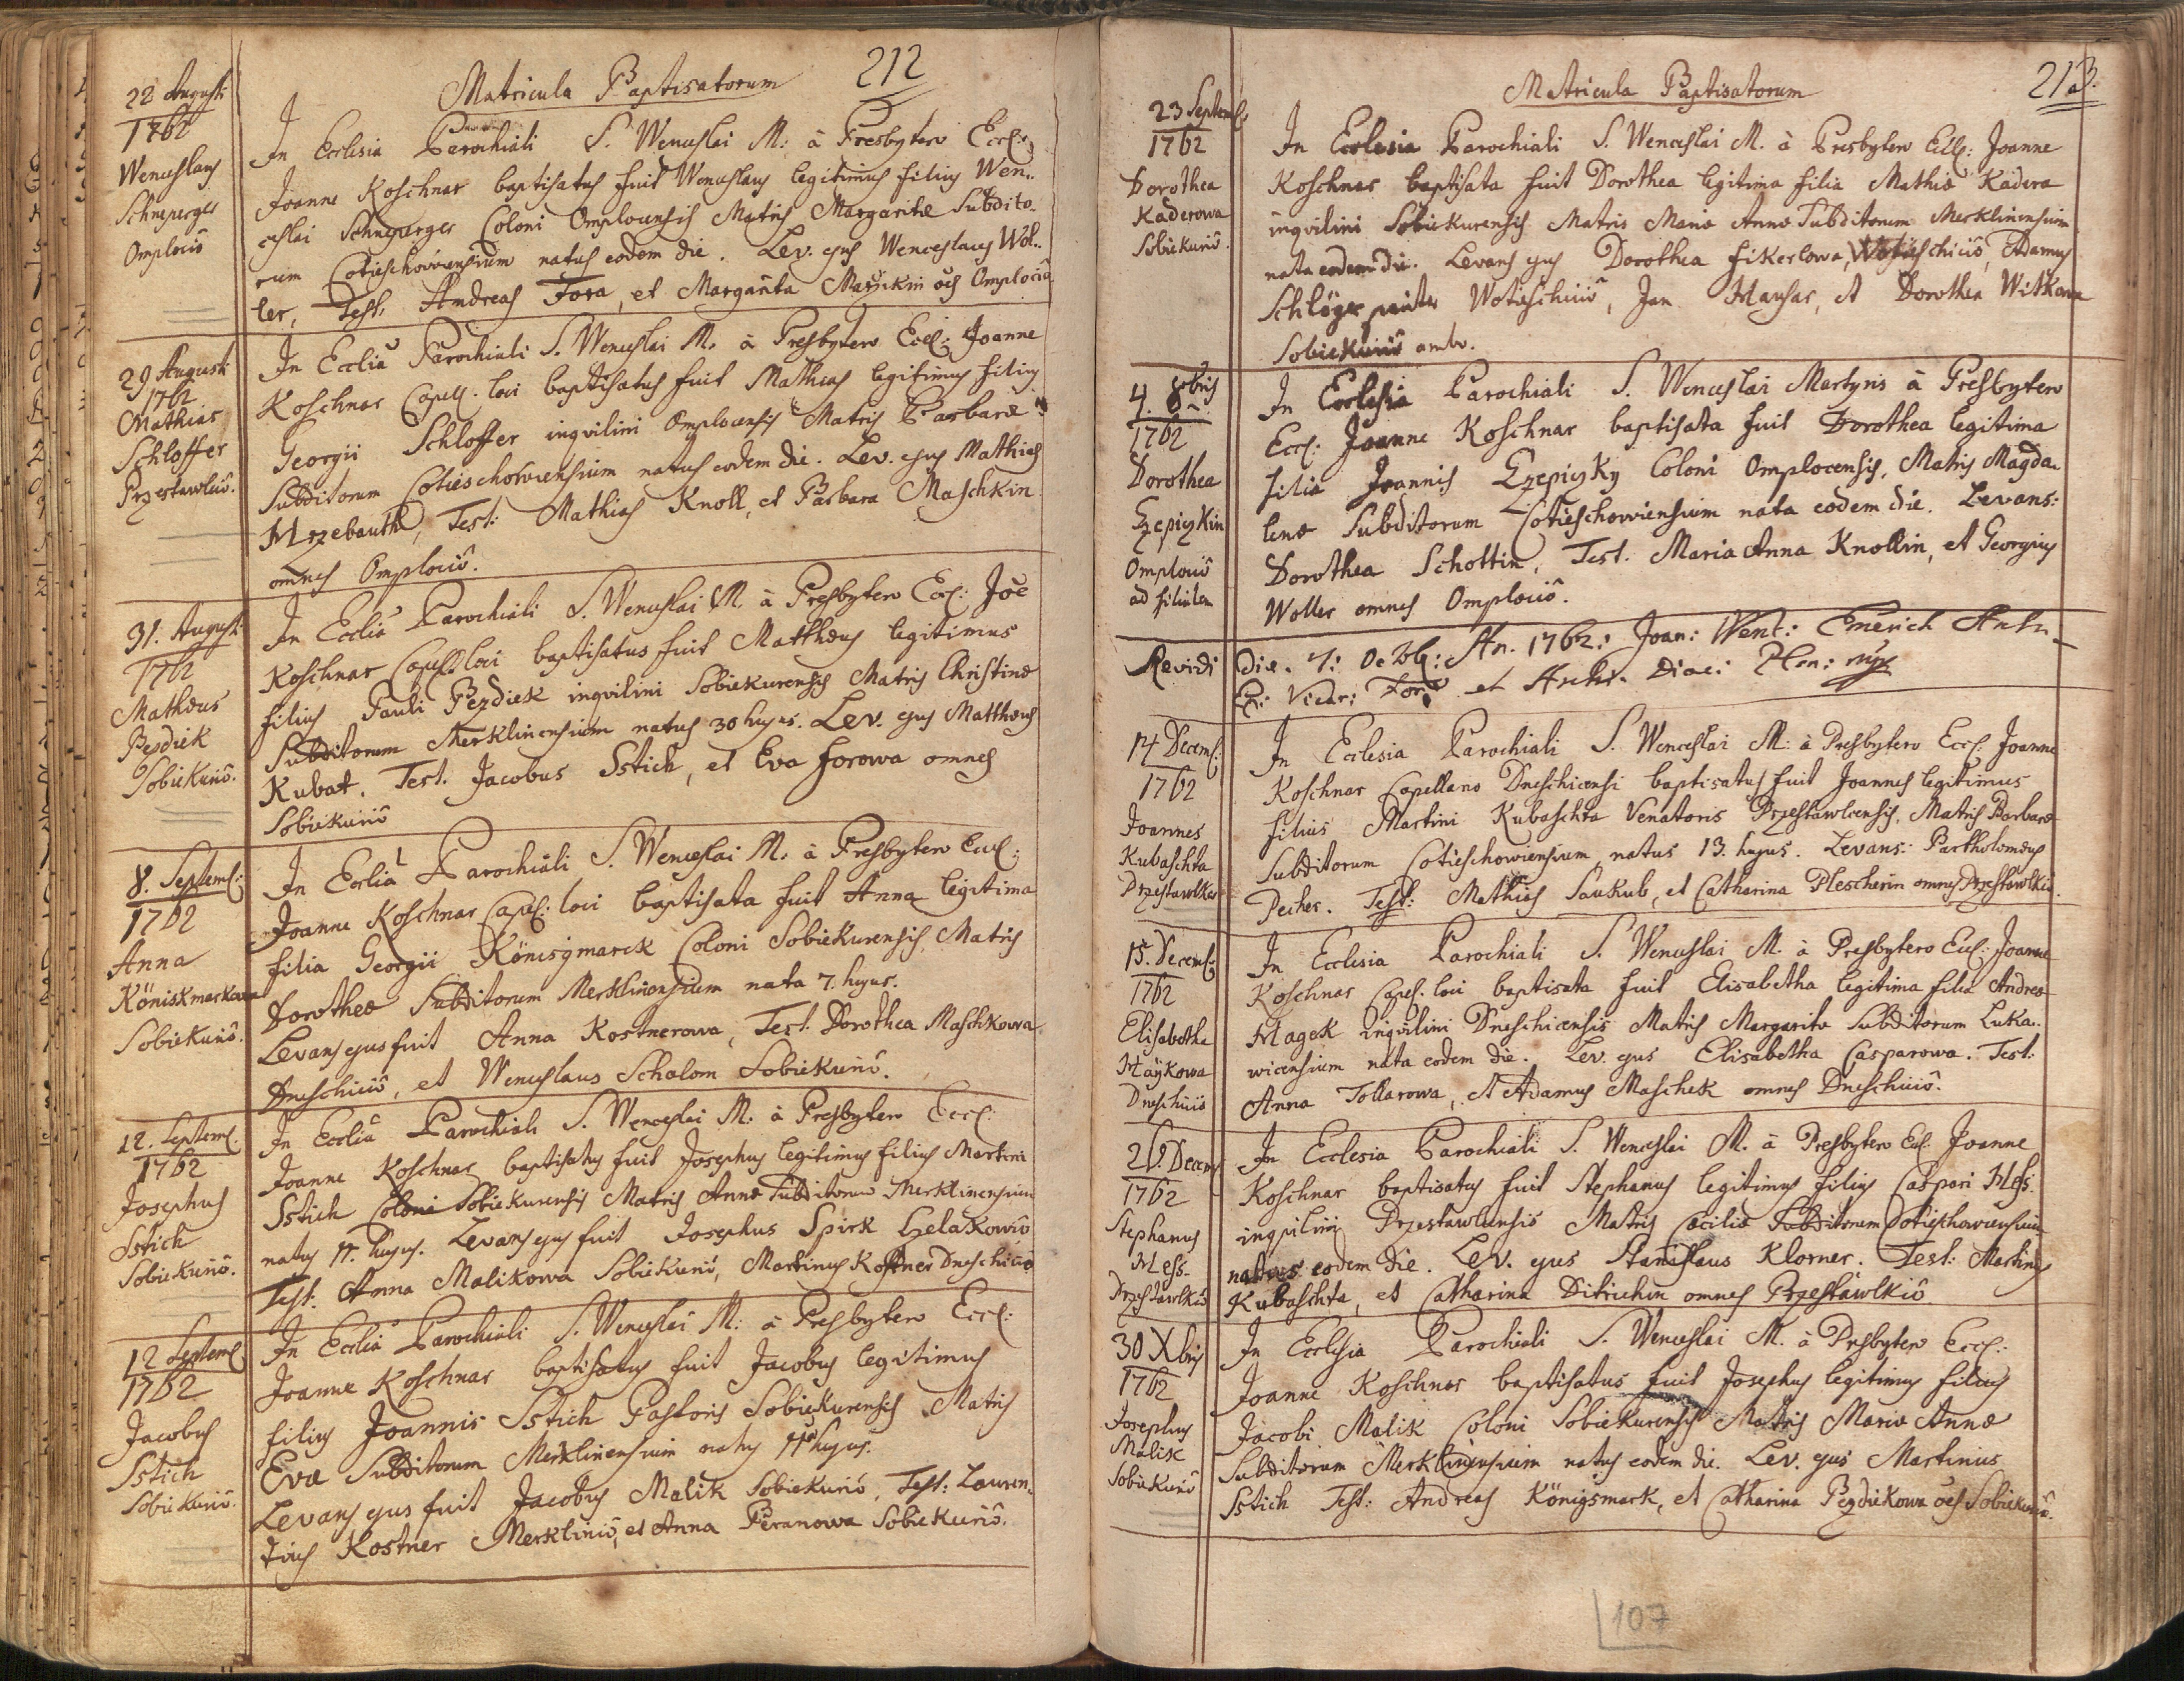 Matricula Baptisatorum 212
22 Augusti
1762
Wenceslaus
Schneperger
Omplociô
In Ecclesia Parochiali S. Wenceslai M: à Presbytero Eccl:
Joanne Koschnar baptisatus fuit Wenceslaus legitimus filius Wen:
ceslai Schneperger Coloni Omplocensis Matris Margaritæ Subdito-
rum Cotieschowiensium natus eodem die. Lev. ejus Wenceslaus Wol-
ler, Test. Andreas Fora, et Margarita Maschkin oēs Omplociô
29 Augusti
1762
Mathias
Schloffer
Przestawlcô.
In Ecclīa Parochiali S. Wenceslai M. à Presbytero Eccl: Joanne
Koschnar Capell. loci baptisatus fuit Mathias legitimus filius
Georgii Schloffer inqvilini Omplocensis Matris Barbaræ
Subditorum Cotieschowiensium natus eodem die. Lev. ejus Mathias
Mrzebauth, Test: Mathias Knoll, et Barbara Maschkin
omnes Omplociô.
31. Augusti
1762
Mathæus
Pezdiek
Sobiekuriô.
In Ecclīa Parochiali S. Wenceslai M. à Presbytero Eccl: Joē
Koschnar Capell. loci baptisatus fuit Matthæus legitimus
filius Pauli Pezdiek inqvilini Sobiekurensis Matris Christinæ
Subditorum Merklinensium natus 30 hujus. Lev. ejus Matthæus
Kubat. Test. Jacobus Sstich, et Eva Forowa omnes
Sobiekuriô
8. Septemb:
1762
Anna
Köniskmarkowa
Sobiekuriô.
In Ecclīa Parochiali S. Wenceslai M. à Presbytero Eccl:
Joanne Koschnar Capell: loci baptisata fuit Anna legitima
filia Georgii Königsmarck Coloni Sobiekurensis, Matris
Dorotheæ Subditorum Merklinensium nata 7. hujus.
Levans ejus fuit Anna Kostnerowa, Test. Dorothea Maschkowa
Dneschiciô, et Wenceslaus Scholom Sobiekuriô.
12. Septemb.
1762
Josephus
Sstich
Sobiekuriô.
In Ecclīa Parochiali S. Wenceslai M. à Presbytero Eccl:
Joanne Koschnar baptisatus fuit Josephus legitimus filius Martini
Sstich Coloni Sobiekurensis Matris Annæ Subditorum Merklinensium
natus 11. hujus. Levans ejus fuit Josephus Spirk Lelakowiô
Test. Anna Malikowa Sobiekuriô, Martinus Kostner Dneschiciô
12 Septemb
1762
Jacobus
Sstich
Sobiekuriô.
In Ecclīa Parochiali S. Wenceslai M: à Presbytero Eccl:
Joanne Koschnar baptisatus fuit Jacobus legitimus
filius Joannis Sstich Pastoris Sobiekurensis Matris
Evæ Subditorum Merklinensium natus 11 hujus.
Levans ejus fuit Jacobus Malik Sobiekuriô, Test: Lauren-
tius Kostner Merkliniô, et Anna Peranowa Sobiekuriô.
Matricula Baptisatorum 213.
23 Septemb
1762
Dorothea
Kaderowa
Sobiekuriô.
In Ecclesia Parochiali S. Wenceslai M. à Presbytero Eccl: Joanne
Koschnar baptisata fuit Dorothea legitima filia Mathiæ Kadera
inqvilini Sobiekurensis Matris Mariæ Annæ Subditorum Merklinensium
nata eodem die. Levans ejus Dorothea Fikerlowa, Wotieschiciô, Adamus
Schlögr Wotieschiciô, Jan Hausar, et Dorothea Witkowa
Sobiekuriô ambo.
4. 8bris
1762
Dorothea
Czepiczkin
Omplociô
ad filialem
In Ecclesia Parochiali S. Wenceslai Martyris à Presbytero
Eccl: Joanne Koschnar baptisata fuit Dorothea legitima
filia Joannis Czepiczky Coloni Omplocensis, Matris Magda-
lenæ Subditorum Cotieschowiensium nata eodem die. Levans:
Dorothea Schottin, Test. Maria Anna Knollin, et Georgius
Woller omnes Omplociô.
Revidi Die. 7: Octob: An. 1762: Joan: Wenc: Emerich
Vicar: For: et Archi. Diac: Plsn: mpr
14 Decemb:
1762
Joannes
Kubaschta
Przestawlker
In Ecclesia Parochiali S. Wenceslai M: à Presbytero Eccl: Joanne
Koschnar Capellano Dneschicensi baptisatus fuit Joannes legitimus
filius Martini Kubaschta Venatoris Przestawlcensis, Matris Barbaræ
Subditorum Cotieschowiensium natus 13. hujus. Levans: Bartholomæus
Pecher. Test: Mathias Saukub, et Catharina Plescherin omnes Przestawlkiô.
15. Decemb:
1762
Elisabetha
Haykowa
Dneschiciô
In Ecclesia Parochiali S. Wenceslai M. à Presbytero Eccl: Joanne
Koschnar Capel. loci baptisata fuit Elisabetha legitima filia Andreæ
Hagek inqvilini Dneschicensis Matris Margaritæ Subditorum Luka-
wicensium nata eodem die. Lev. ejus Elisabetha Casparowa. Test:
Anna Tollarowa, et Adamus Maschek omnes Dneschiciô.
26. Decem
1762
Stephanus
Hess
Przestawlkiô
In Ecclesia Parochiali S. Wenceslai M. à Presbytero Eccl. Joanne
Koschnar baptisatus fuit Stephanus legitimus filius Caspari Hess
inqvilini Przestawlcensis Matris Cæciliæ Subditorum Cotieschowiensium
natus eodem die. Lev. ejus Stanislaus Klorner. Test: Martinus
Kubaschta, et Catharina Ditrichin omnes Przestawlkiô
30 Xbris
1762
Josephus
Malik
Sobiekuriô
In Ecclesia Parochiali S. Wenceslai M. à Presbytero Eccl:
Joanne Koschnar baptisatus fuit Josephus legitimus filius
Jacobi Malik Coloni Sobiekurensis Matris Mariæ Annæ
Subditorum Merklinensium natus eodem die. Lev. ejus Martinus
Sstich Test: Andreas Königsmark, et Catharina Pezdiekowa oēs Sobiekuriô.
107